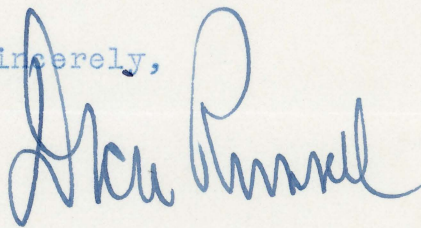 incerely,
Dick Russell